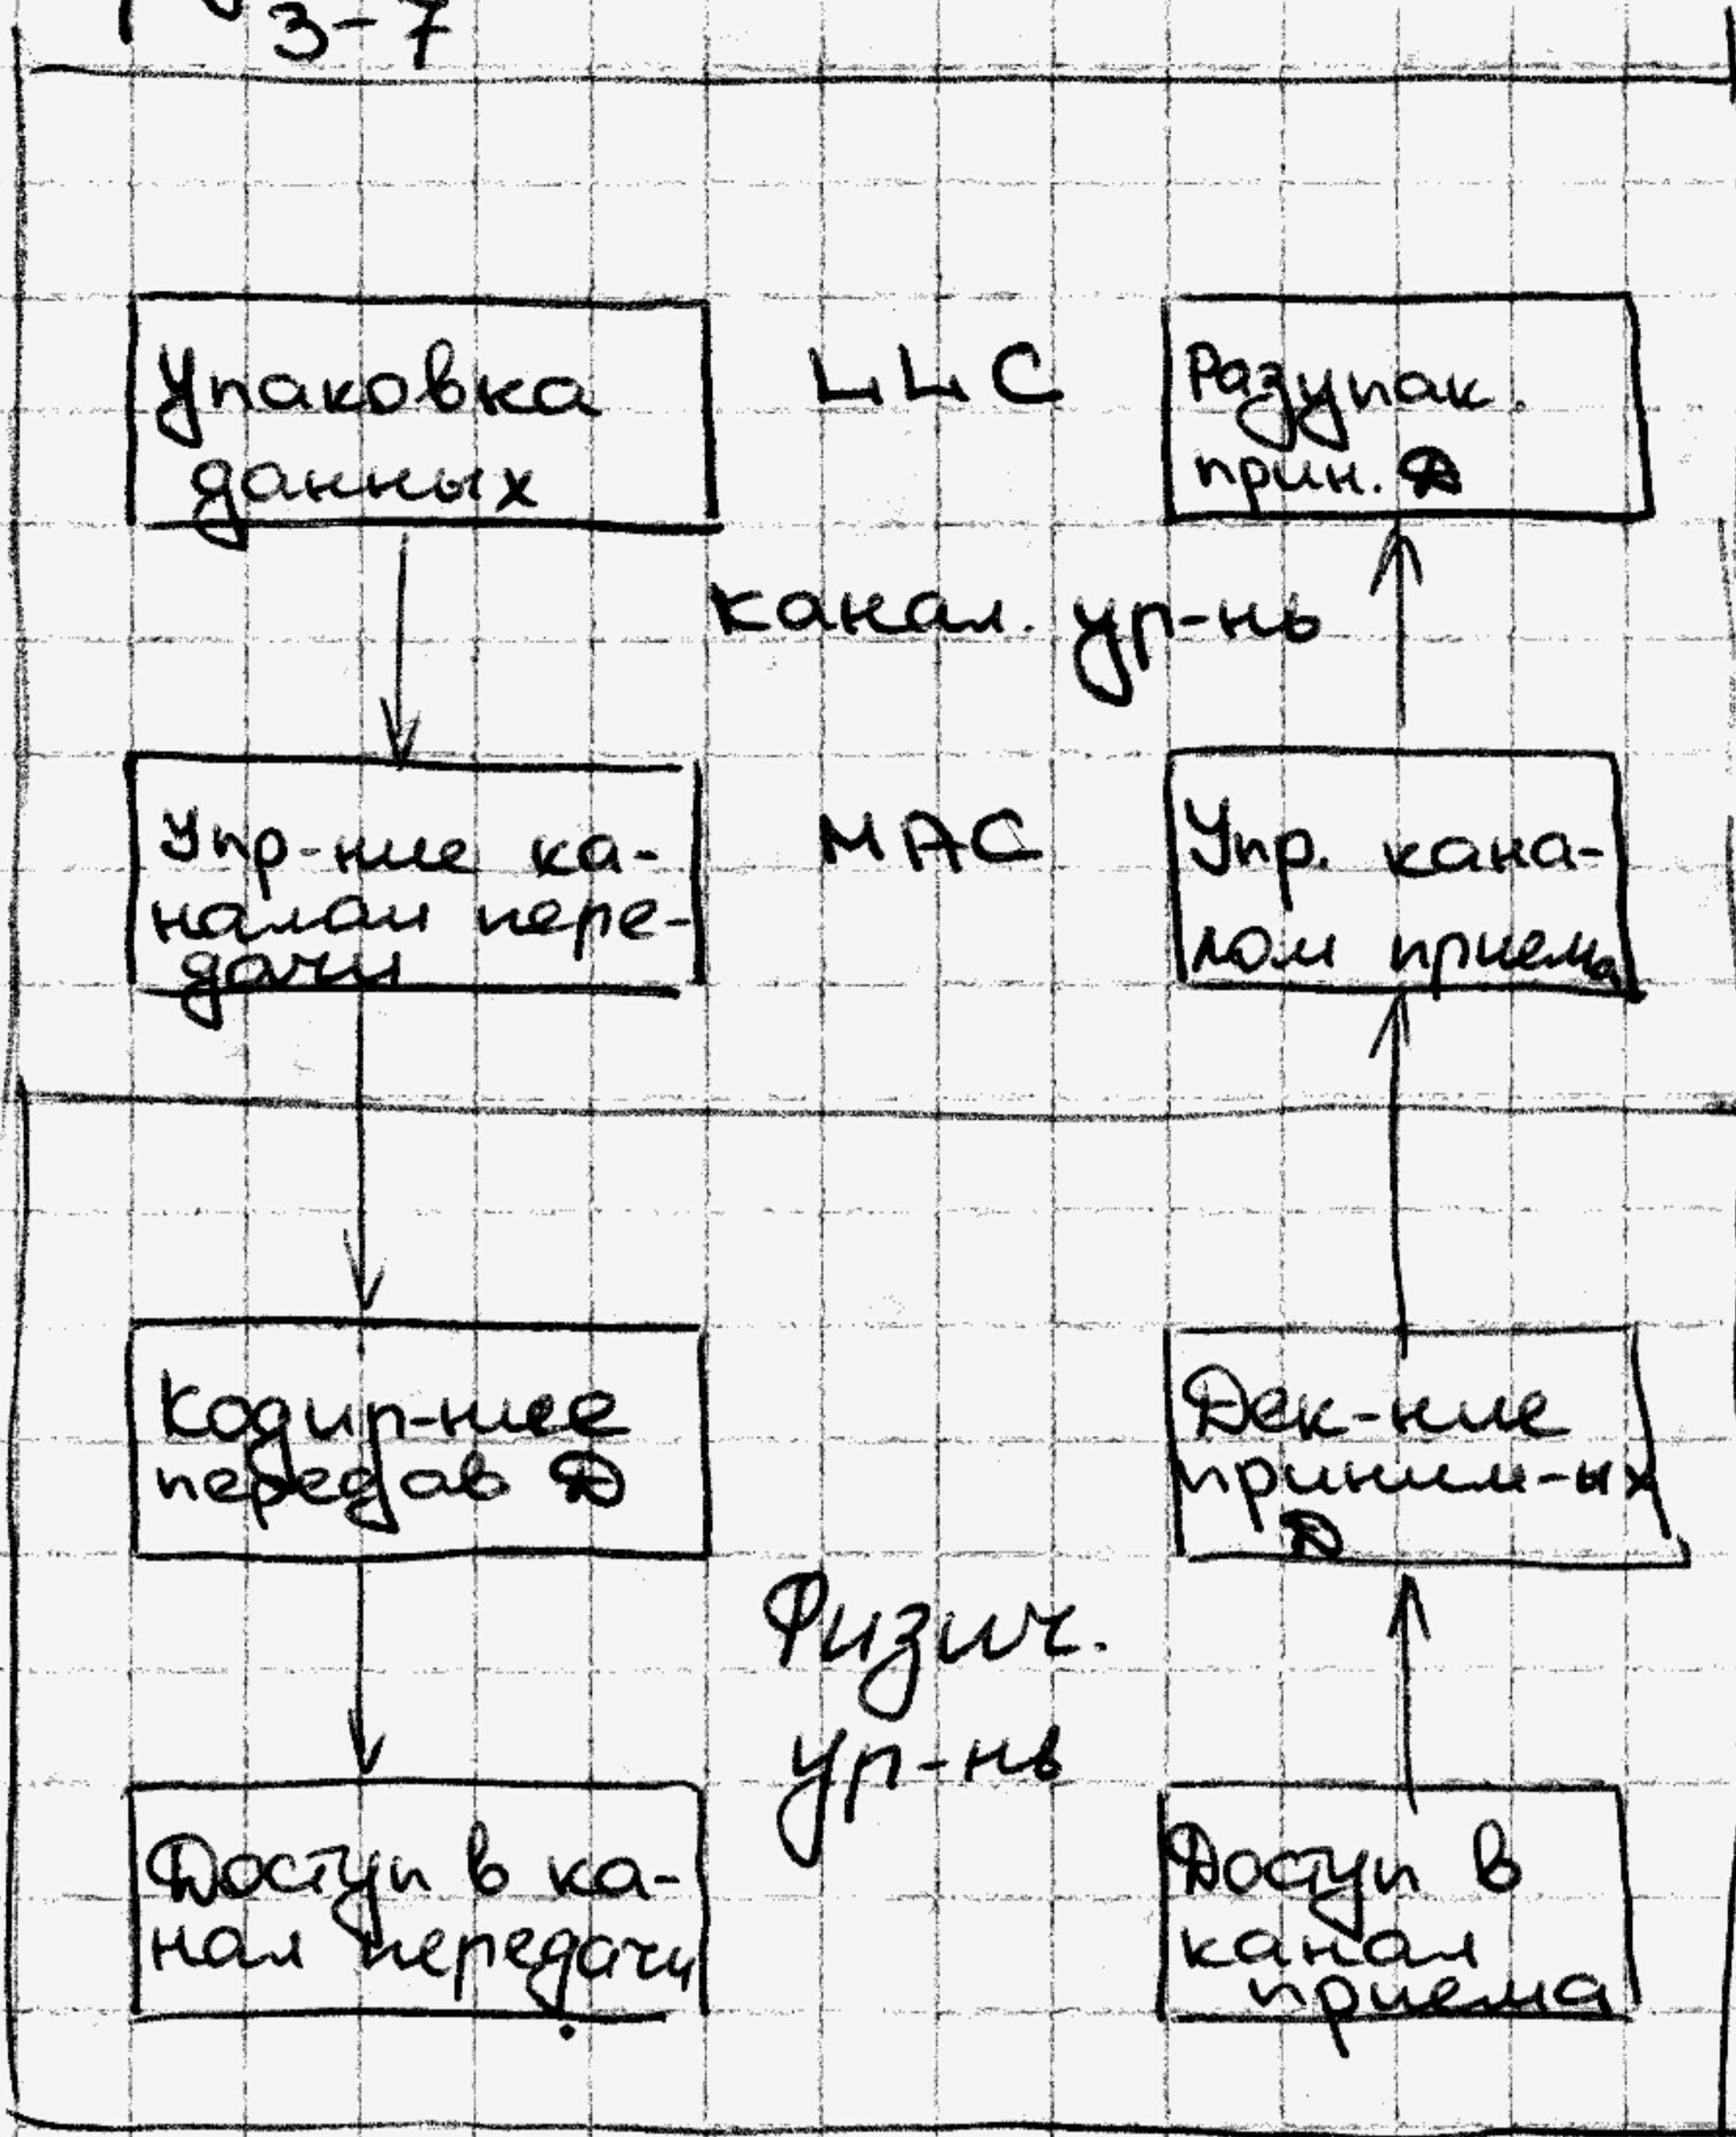 3-7
Упаковка
данных
LLC
Разупак.
прин. Д
канал. ур-нь
Упр-ние ка-
налом пере-
дачи
MAC
Упр. кана-
лом приема
Кодир-ние
передав Д
Дек-ние
приним-ых
Д
Физич.
ур-нь
Доступ в ка-
нал передачи
Доступ в
канал
приема